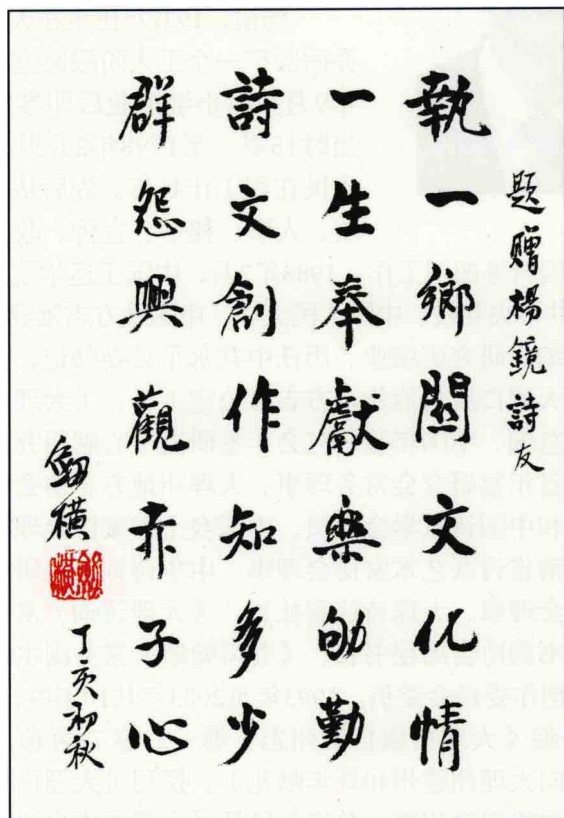 題贈楊鏡詩友
執一鄉關文化情
一生奉獻樂劬勤
詩文創作知多少
群怨興觀赤子心
劍横
丁亥初秋